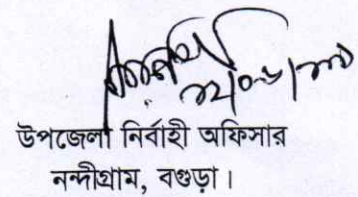 উপজেলা নির্বাহী অফিসার
নন্দীগ্রাম, বগুড়া।